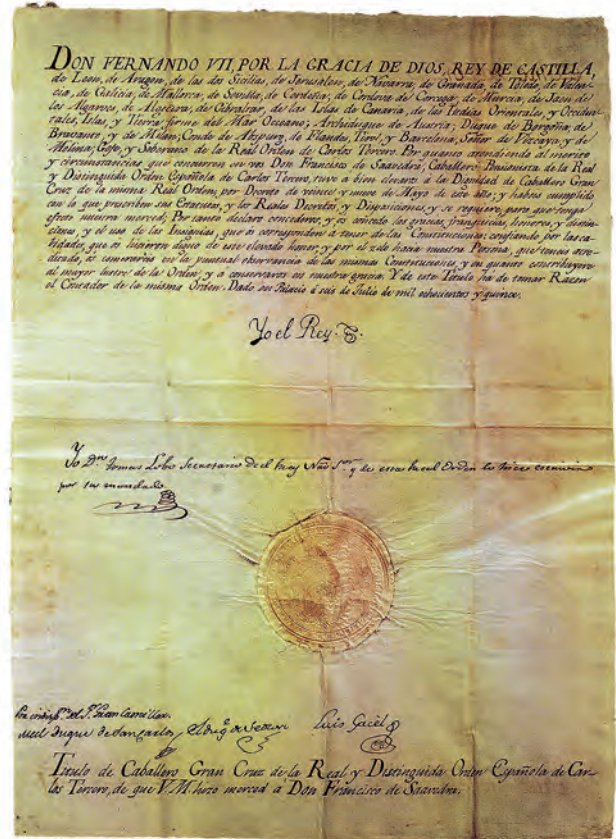 DON FERNANDO VII, POR LA GRACIA DE DIOS, REY DE CASTILLA,
de Leon, de Aragon, de las dos Sicilias, de Jerusalen, de Navarra, de Granada, de Toledo, de Valen-
cia, de Galicia, de Mallorca, de Sevilla, de Cerdeña, de Cordova, de Corcega, de Murcia, de Jaen, de
los Algarves, de Algecira, de Gibraltar, de las Islas de Canaria, de las Indias Orientales, y Occiden-
tales, Islas, y Tierra firme del Mar Oceano; Archiduque de Austria; Duque de Borgoña, de
Brabante, y de Milan; Conde de Abspurg, de Flandes, Tirol, y Barcelona; Señor de Vizcaya, y de
Molina; Gefe, y Soberano de la Real Orden de Carlos Tercero. Por quanto atendiendo al merito
y circunstancias que concurren en vos Don Francisco de Saavedra, Caballero Pensionista de la Real
y Distinguida Orden Española de Carlos Tercero, tuve a bien elevaros á la Dignidad de Caballero Gran
Cruz de la misma Real Orden, por Decreto de veinte y nueve de Mayo de este año; y habeis cumplido
con lo que prescriben sus Estatutos, y los Reales Decretos, y Disposiciones, y se requiere, para que tenga
efecto nuestra merced; Por tanto declaro concederos, y os concedo las gracias, franquicias, honores, y distin-
ciones, y el uso de las Insignias, que os corresponden a tenor de las Constituciones: confiando, por las ca-
lidades, que os hicieron digno de este elevado honor, y por el zelo hacia nuestra Persona, que teneis acre-
ditado, os esmerareis en la puntual observancia de las mismas Constituciones, y en quanto contribuyere
al mayor lustre de la Orden; y á conservaros en nuestra gracia. Y de este Titulo há de tomar Razon
el Contador de la misma Orden. Dado en Palacio á seis de Julio de mil ochocientos y quince.
Yo el Rey.
Yo Dn. Tomas Lobo Secretario del Rey Nro Sor. y de esta Real Orden lo hice escrivir
por su mandado
Por indispn. del Sr. Gran Canciller
el Duque de San Carlos
Luis Gacel
Titulo de Caballero Gran Cruz de la Real y Distinguida Orden Española de Car-
los Tercero, de que V.M. hizo merced á Don Francisco de Saavedra.